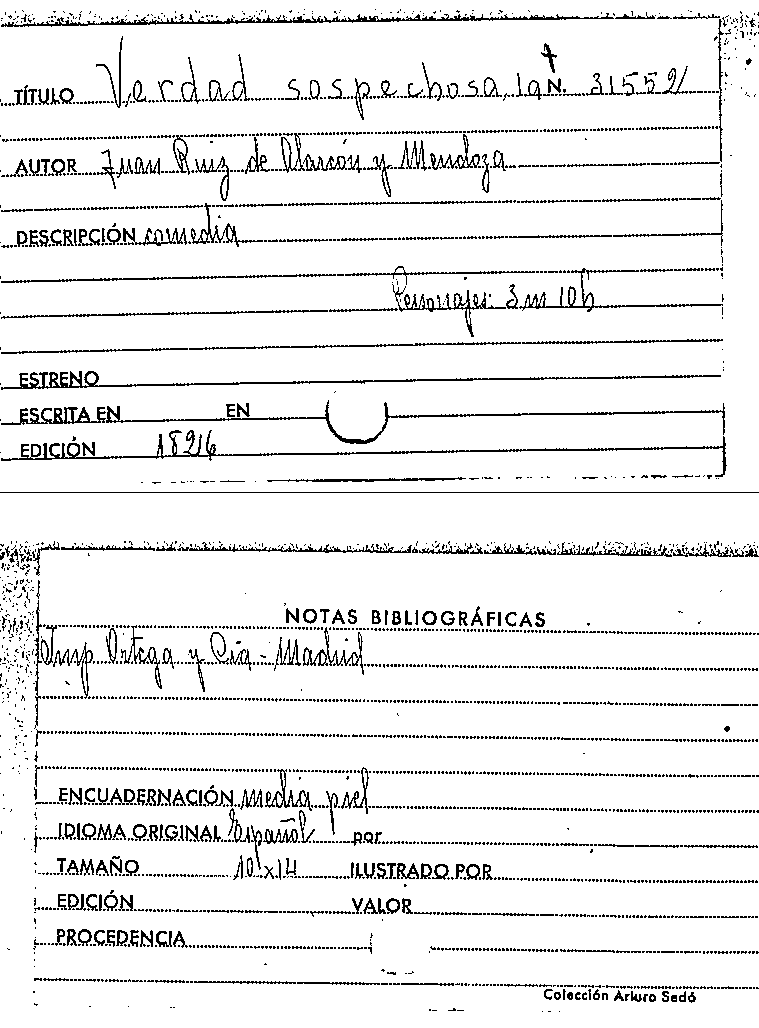 TÍTULO Verdad sospechosa, la N. 31552
AUTOR Juan Ruiz de Alarcón y Mendoza
DESCRIPCIÓN comedia
Personajes: 3 m 10 h
ESTRENO
ESCRITA EN EN
EDICIÓN 1826
NOTAS BIBLIOGRÁFICAS
Imp Ortega y Cia - Madrid
ENCUADERNACIÓN media piel
IDIOMA ORIGINAL Español por
TAMAÑO 10 x 14 ILUSTRADO POR
EDICIÓN VALOR
PROCEDENCIA
Colección Arturo Sedó